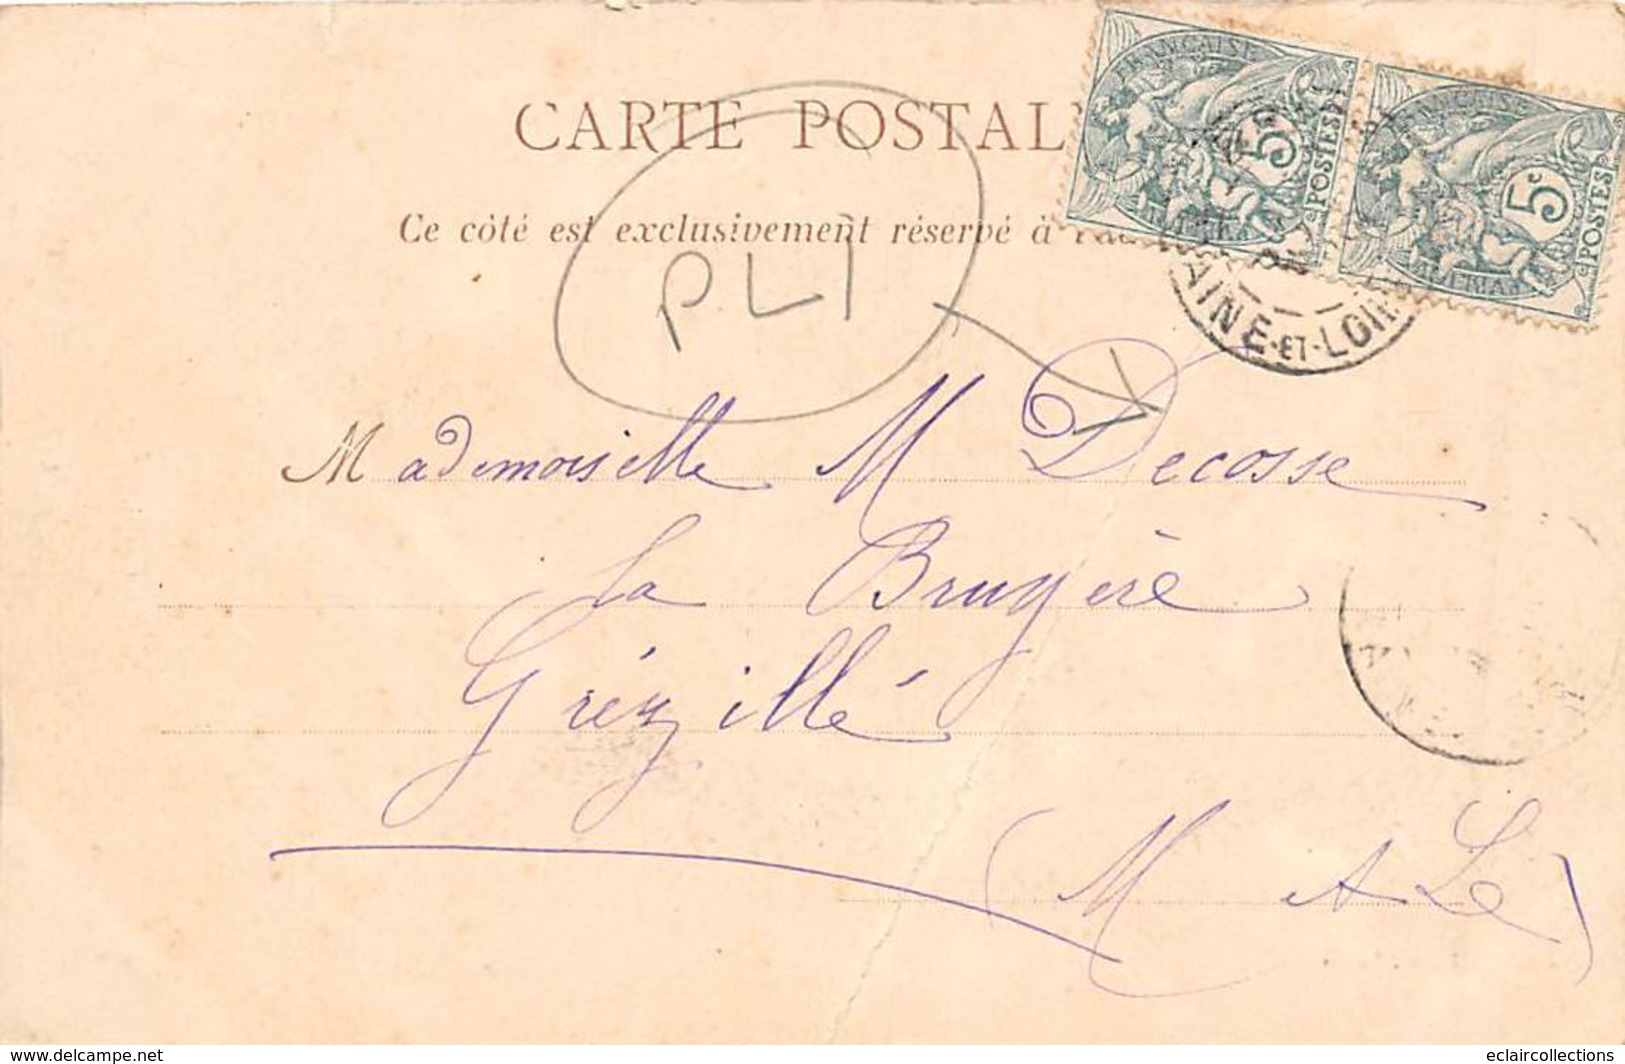 CARTE POSTAL
Ce côté est exclusivement réservé à
FRANÇAISE
5c
POSTES
FRANÇAISE
5c
POSTES
AINE-ET-LOI
PLI
Mademoiselle M Decosse
La Bruyère
Grézillé
(M & Le)
www.delcampe.net
eclaircollections